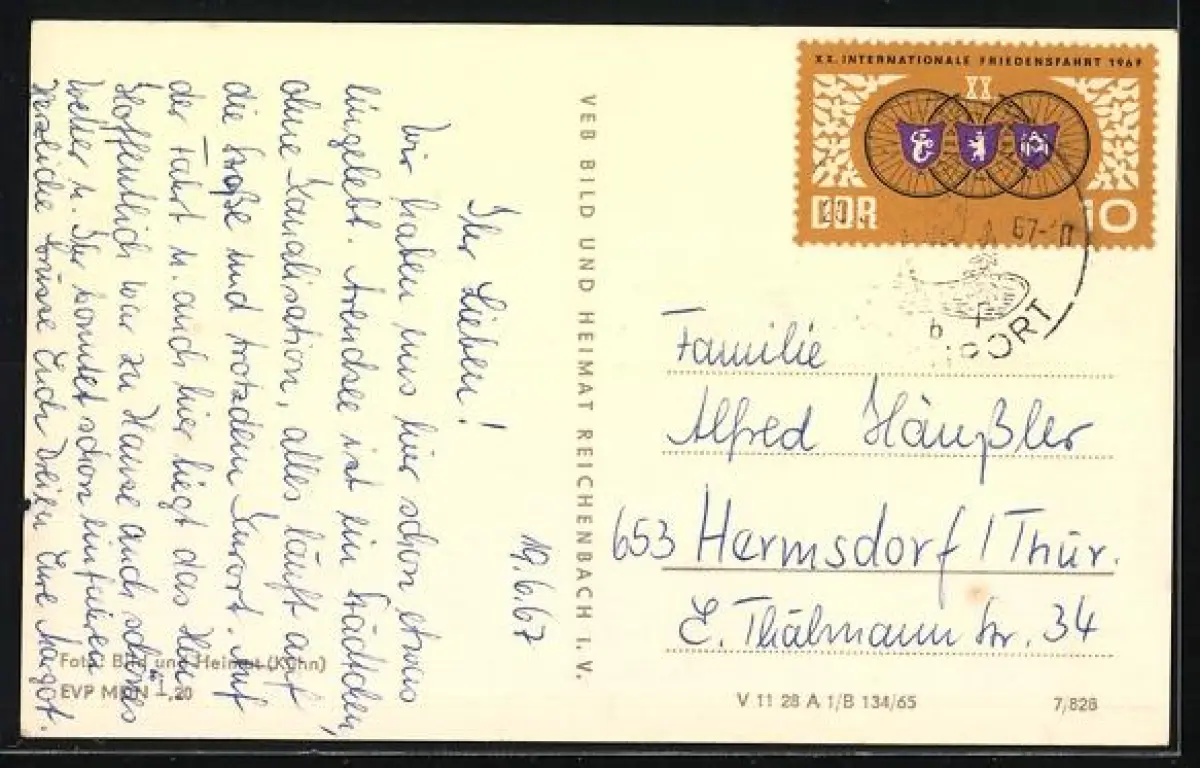 19.6.67
Ihr Lieben!
Wir haben uns hier schon etwas
eingelebt. Arendsee ist ein Städtchen,
ohne Kanalisation, alles läuft auf
die Straße und trotzdem Kurort. Auf
der Fahrt u. auch hier liegt das Heu
Hoffentlich war zu Hause auch schönes
Wetter u. Ihr konntet schon einfahren
Herzliche Grüsse Euch Eure Margot.
Foto: Bild und Heimat (Kühn)
EVP MDN 1,20
VEB BILD UND HEIMAT REICHENBACH I. V.
XX. INTERNATIONALE FRIEDENSFAHRT 1967
XX
DDR 10
67
b
Familie
Alfred Häußler
653 Hermsdorf / Thür.
E. Thälmann Str. 34
V 11 28 A 1/B 134/65
7/828